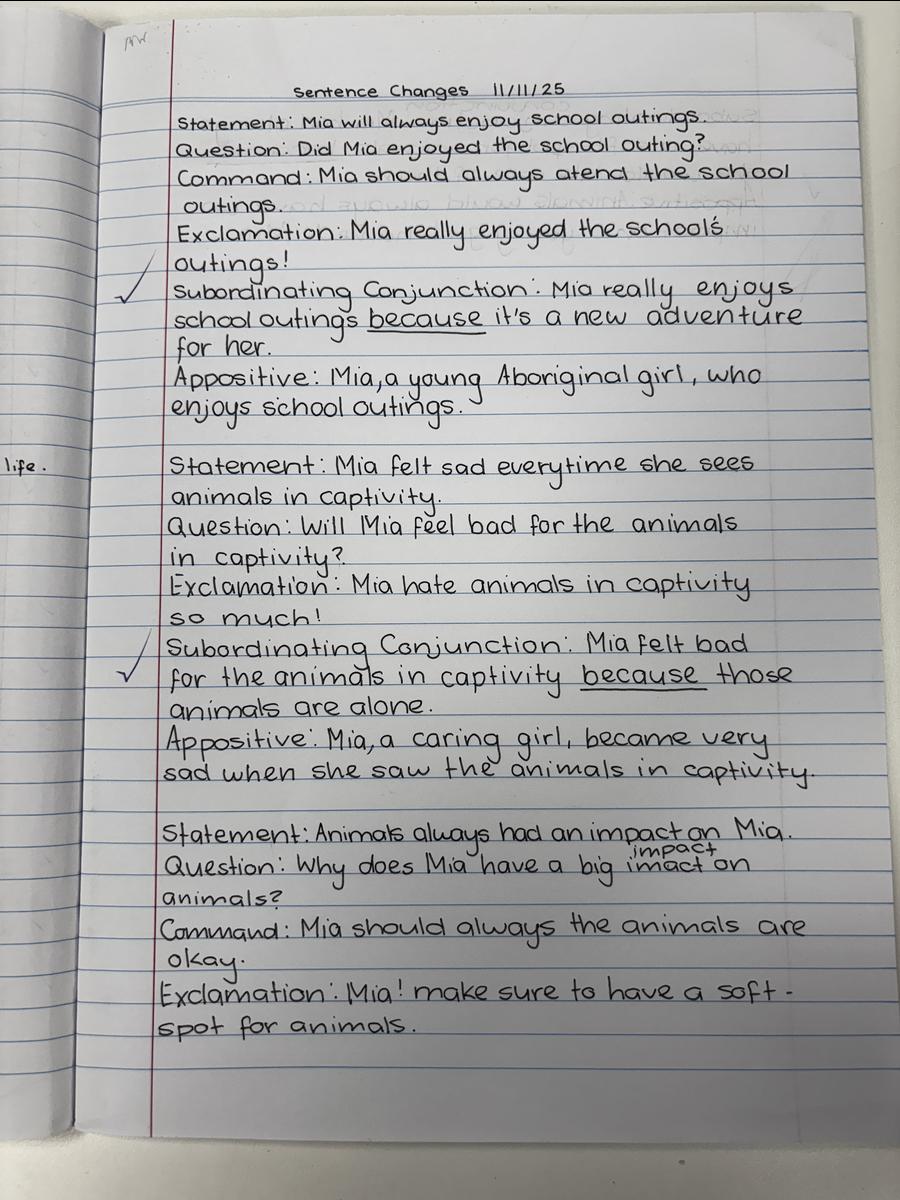 Sentence Changes 11/11/25
Statement: Mia will always enjoy school outings.
Question: Did Mia enjoyed the school outing?
Command: Mia should always atend the school
outings.
Exclamation: Mia really enjoyed the school's
outings!
Subordinating Conjunction: Mia really enjoys
school outings because it's a new adventure
for her.
Appositive: Mia, a young Aboriginal girl, who
enjoys school outings.
life.
Statement: Mia felt sad everytime she sees
animals in captivity.
Question: Will Mia feel bad for the animals
in captivity?
Exclamation: Mia hate animals in captivity
so much!
Subordinating Conjunction: Mia felt bad
for the animals in captivity because those
animals are alone.
Appositive: Mia, a caring girl, became very
sad when she saw the animals in captivity.
Statement: Animals always had an impact on Mia.
impact
Question: Why does Mia have a big imact on
animals?
Command: Mia should always the animals are
okay.
Exclamation: Mia! make sure to have a soft-
spot for animals.